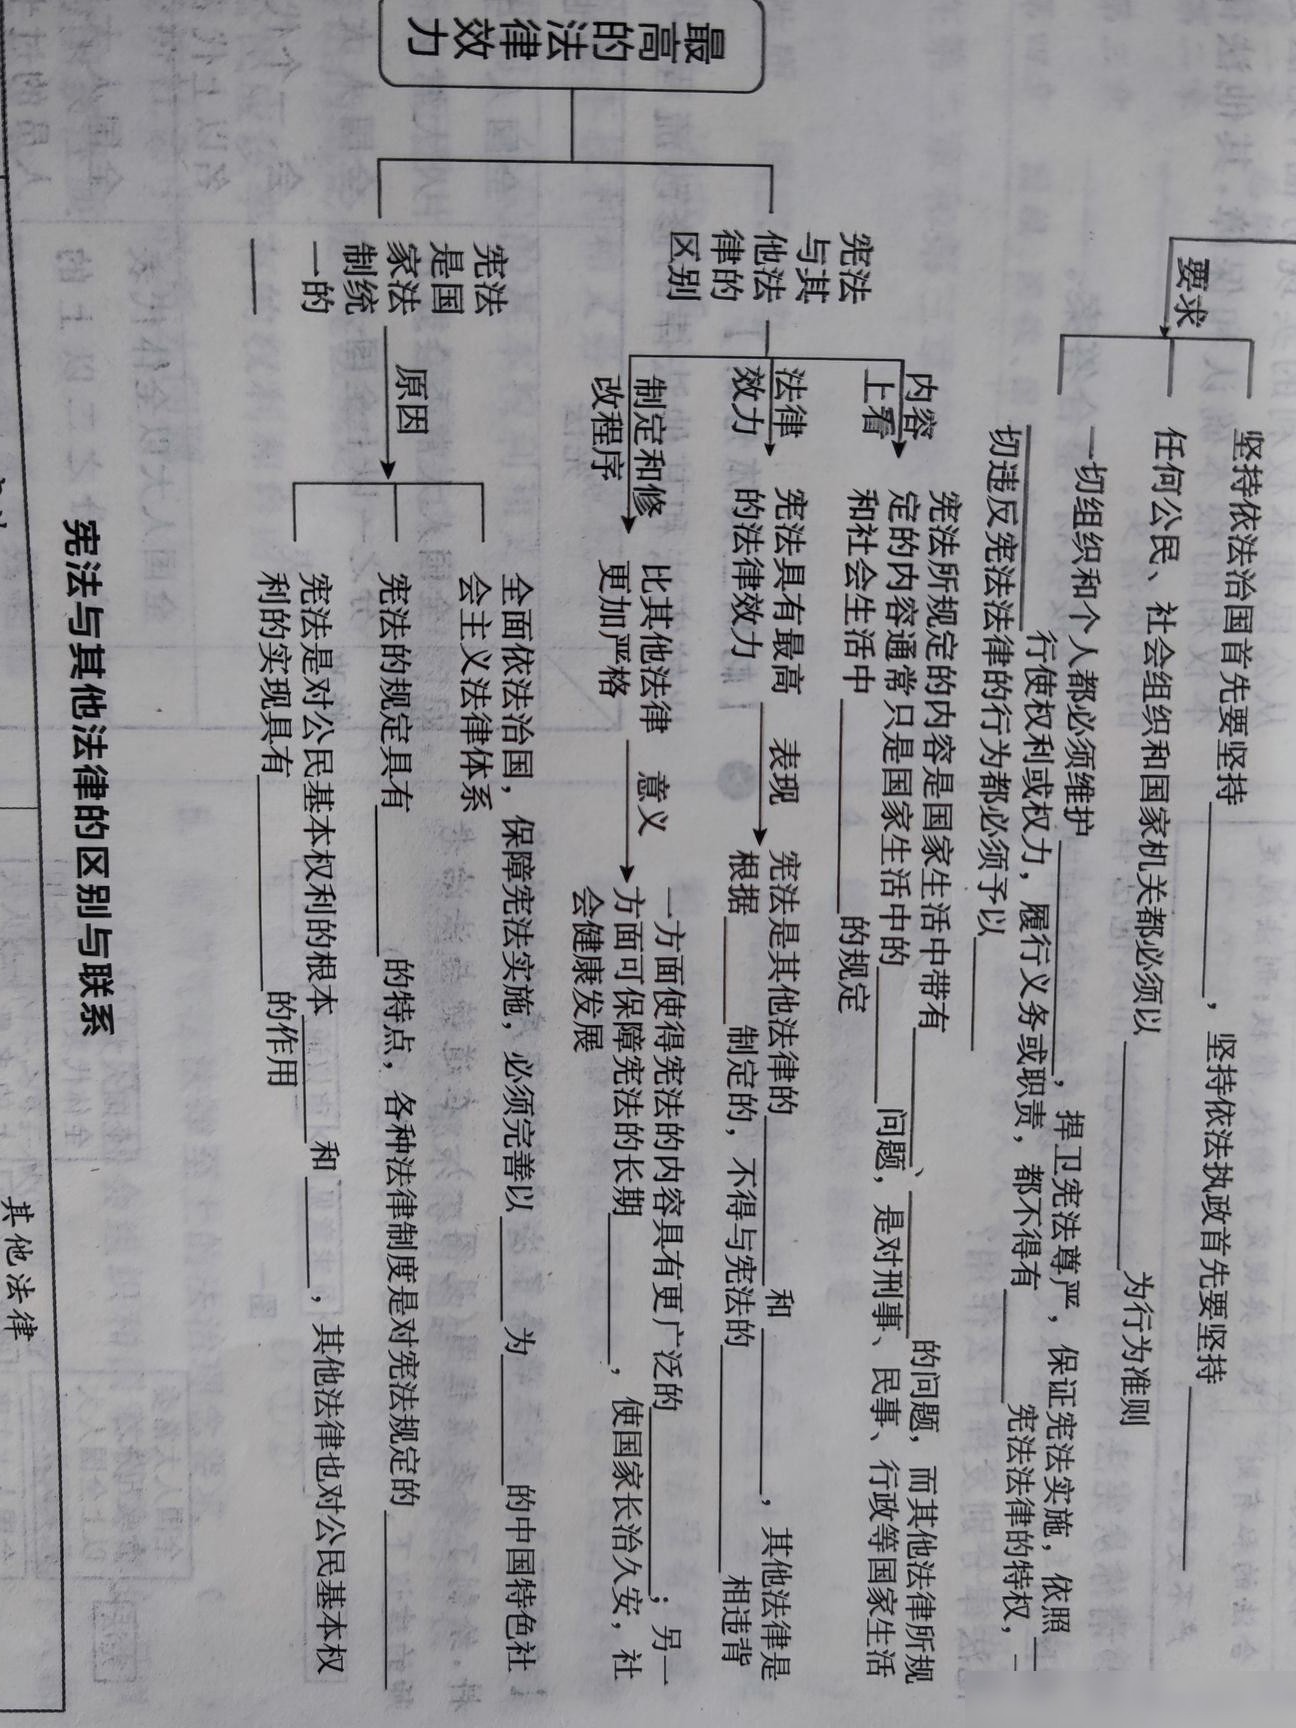 要求
坚持依法治国首先要坚持________，坚持依法执政首先要坚持________
任何公民、社会组织和国家机关都必须以________为行为准则
一切组织和个人都必须维护________，捍卫宪法尊严，保证宪法实施，依照
________行使权利或权力，履行义务或职责，都不得有________宪法法律的特权，一
切违反宪法法律的行为都必须予以________
最高
的法
律效
力
宪法
与其
他法
律的
区别
内容
上看
宪法所规定的内容是国家生活中带有________、________的问题，而其他法律所规
定的内容通常只是国家生活中的________问题，是对刑事、民事、行政等国家生活
和社会生活中________的规定
法律
效力
宪法具有最高
的法律效力
表现
宪法是其他法律的________和________，其他法律是
根据________制定的，不得与宪法的________相违背
制定和修
改程序
比其他法律
更加严格
意义
一方面使得宪法的内容具有更广泛的________；另一
方面可保障宪法的长期________，使国家长治久安，社
会健康发展
宪法
是国
家法
制统
一的
________
原因
全面依法治国，保障宪法实施，必须完善以________为________的中国特色社
会主义法律体系
宪法的规定具有________的特点，各种法律制度是对宪法规定的________
宪法是对公民基本权利的根本________和________，其他法律也对公民基本权
利的实现具有________的作用
宪法与其他法律的区别与联系
其他法律